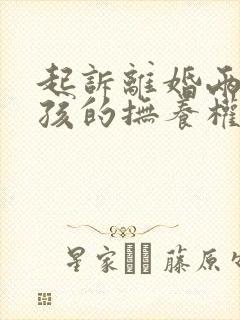 起訴離婚兩
孩的撫養權
星家 藤原